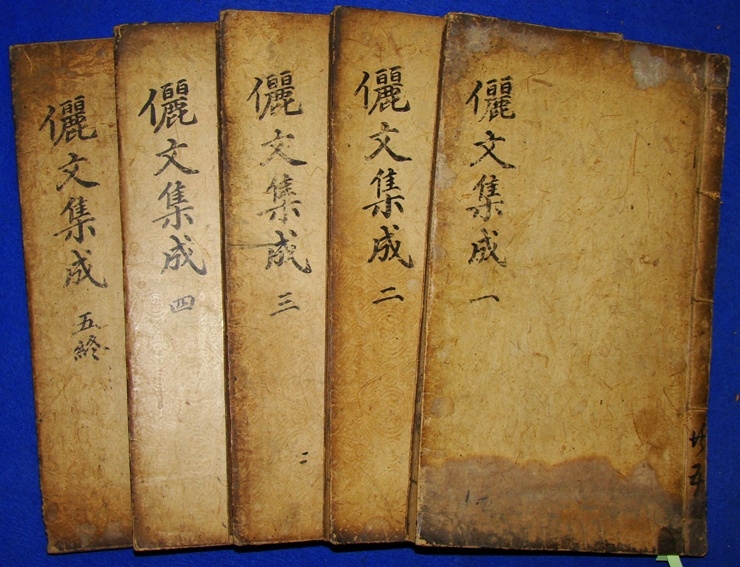 儷文集成 一
儷文集成 二
儷文集成 三
儷文集成 四
儷文集成 五終
共五
二